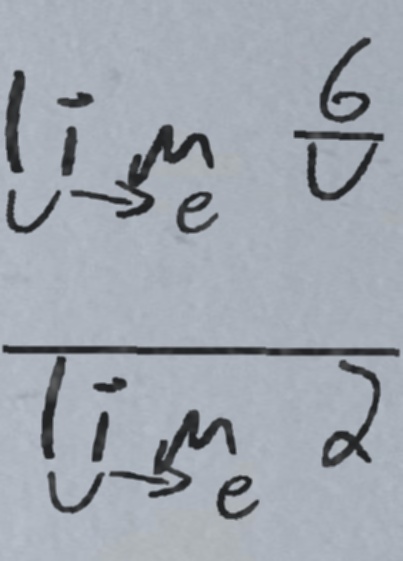 \frac{\lim_{v \to e} \frac{6}{v}}{\lim_{v \to e} 2}